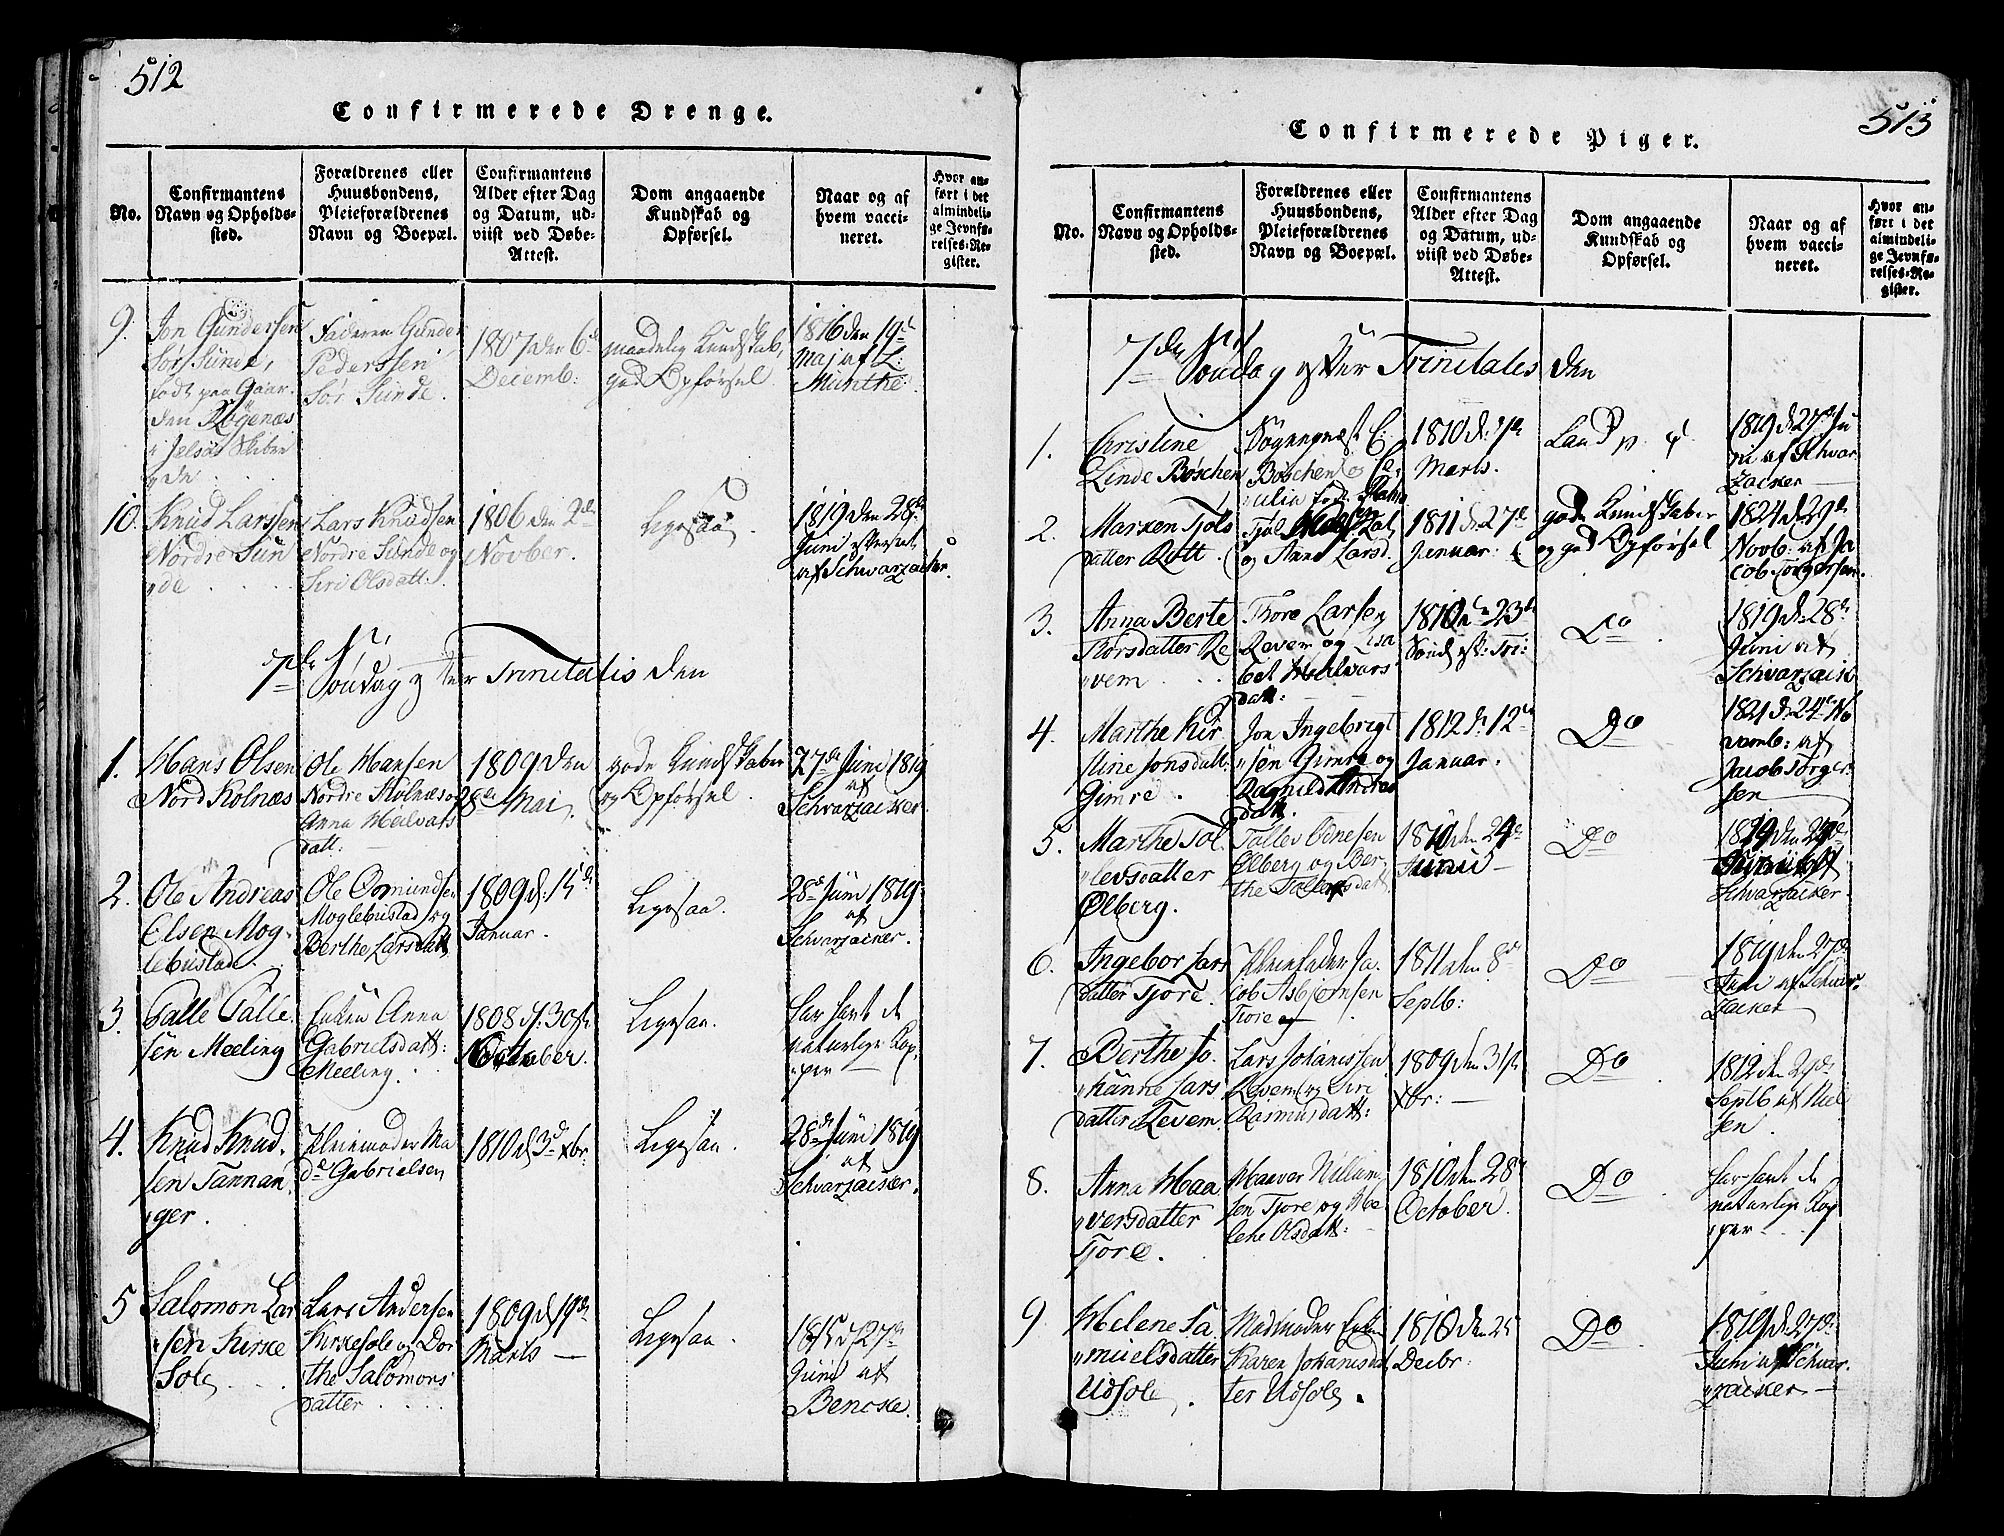 512
Confirmerede Drenge.
No.
Confirmantens
Navn og Opholds-
sted.
Forældrenes eller
Huusbondens,
Pleieforældrenes
Navn og Boepæl.
Confirmantens
Alder efter Dag
og Datum, ud-
viist ved Døbe-
Attest.
Dom angaaende
Kundskab og
Opførsel.
Naar og af
hvem vacci-
neret.
Hvor an-
ført i det
almindeli-
ge Jevnfø-
relses-Re-
gister.
9.
Jon Gundersen
Sør Sunde,
født paa Gaar-
den
i Jelsøe
Faderen Gunder
Pederssen
Sør Sunde.
1807 den 6te
Decemb:
maadelig Kundskab,
god Opførsel.
1816 den 19de
Maj af L:
Munthe.
10.
Knud Larssen
Nordre Sun
de
Lars Knudsen
Nordre Sunde og
Siri Olsdatt:
1806 den 2de
Novber.
Ligesaa.
1819 den 28de
Juni
af Schwarzacher.
7de Søndag efter Trinitatis den
1.
Hans Olsen
Nord Kolnæs
Ole Hansen
Nordre Kolnæs og
Anna Halvars
datt:
1809 den
28de Mai.
gode Kundskaber
og Opførsel.
27de Juni 1819
af
Schvarzacker.
2.
Ole Andreas
Elsen Mog-
lebustad.
Ole Osmundsen
Moglebustad og
Berthe Larsdatt
1809 d: 15de
Januar.
Ligesaa.
28de Juni 1819
af
Schvarzacker.
3.
Talle Talle-
sen Meeling
Enken Anna
Gabrielsdatt:
Meeling.
1808 d: 30te
November.
Ligesaa.
har havt de
naturlige Kop-
per
4.
Knud Knud-
sen Tannan-
ger.
Pleiemoder Ma
d: Gabrielsen
1810 d 3de xbr:
Ligesaa.
28de Juni 1819
af
Schvarzacker.
5
Salomon Lar
sen Kirke
Sole
Lars Andersen
Kirkesole og Dor
the Salomons
datter
1809 d 19de
Marts
Ligesaa.
1815 d 27de
Juni af
Bencke.
513
Confirmerede Piger.
No.
Confirmantens
Navn og Opholds-
sted.
Forældrenes eller
Huusbondens,
Pleieforældrenes
Navn og Boepæl.
Confirmantens
Alder efter Dag
og Datum, ud-
viist ved Døbe-
Attest.
Dom angaaende
Kundskab og
Opførsel.
Naar og af
hvem vacci-
neret.
Hvor an-
ført i det
almindeli-
ge Jevnfø-
relses-Re-
gister.
7de Søndag efter Trinitatis den
1.
Christine
Linde Bøschen
Sogneprest C.
Bøschen og Ce-
cilia født
1810 d: 7de
Marts.
1819 d 27de Ju
ni af Schvar
zacker
2.
Marren Tjøls
datter Rott
og Anna Larsd.
1811 d 27de
Januar:
gode Kundskaber
og god Opførsel
1824 d 29de
Novb: af Ja
cob Torgersen.
3.
Anna Berte
Thorsdatter Re
vem
Thore Larsen
Revem og Lisa
bet Halvars
datt:
1810 den 23de
Sønd. eft: Tri:
Do
1819 d 28de
Juni af
Schvarzack
4.
Marthe Kir
stine Jonsdatt.
Gimre.
Jon Ingebrigt
sen Gimre og
Ragnild Andreas
datt.
1812 d: 12te
Januar.
Do
1821 d 24de No
vemb: af
Jacob Torger-
sen
5.
Marthe Tol
levsdatter
Ølberg.
Tallev Ødnesen
Ølberg og Ber-
the
1810 den 24de
Junii
Do
1819 den 27de
Juni af
Schvarzacker.
6.
Ingebor Lars
datter Tjore.
Pleiefader Ja-
cob Asbjørnsen
Tjore
1811 den 8de
Septb:
Do
1819 den 27de
Juni af Schvar-
zacker
7.
Berthe Jo-
hanne Lars
datter Revem
Lars Johanissen
Revem og Siri
Rasmusdatt:
1809 den 31te
xbr:
Do
1812 den 29de
Septb af Niel
sen.
8.
Anna Haa
versdatter
Tjore.
Haaver Villum
sen Tjore og He
lene Olsdatt:
1810 den 28de
October.
Do
har havt de
naturlige Kop
per
9
Helene Sa
muelsdatter
Udsole.
Madmoder Enken
Karen Johanisdat
ter Udsole.
1810 den 25
Decbr:
Do
1819 d 27de
Juni af Schvar-
zacker